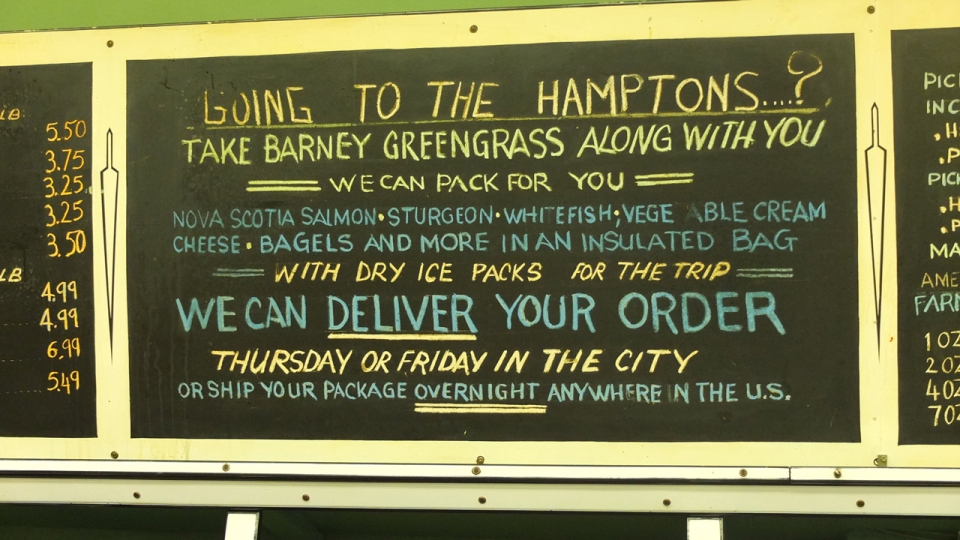 LB
5.50
3.75
3.25
3.25
3.50
LB
4.99
4.99
6.99
5.49
GOING TO THE HAMPTONS....?
TAKE BARNEY GREENGRASS ALONG WITH YOU
WE CAN PACK FOR YOU
NOVA SCOTIA SALMON • STURGEON • WHITEFISH; VEGE ABLE CREAM
CHEESE • BAGELS AND MORE IN AN INSULATED BAG
WITH DRY ICE PACKS FOR THE TRIP
WE CAN DELIVER YOUR ORDER
THURSDAY OR FRIDAY IN THE CITY
OR SHIP YOUR PACKAGE OVERNIGHT ANYWHERE IN THE U.S.
PIC
INC
• H
• P
PIC
• H
• P
MA
AME
FARM
1 OZ
2 OZ
4 OZ
7 OZ